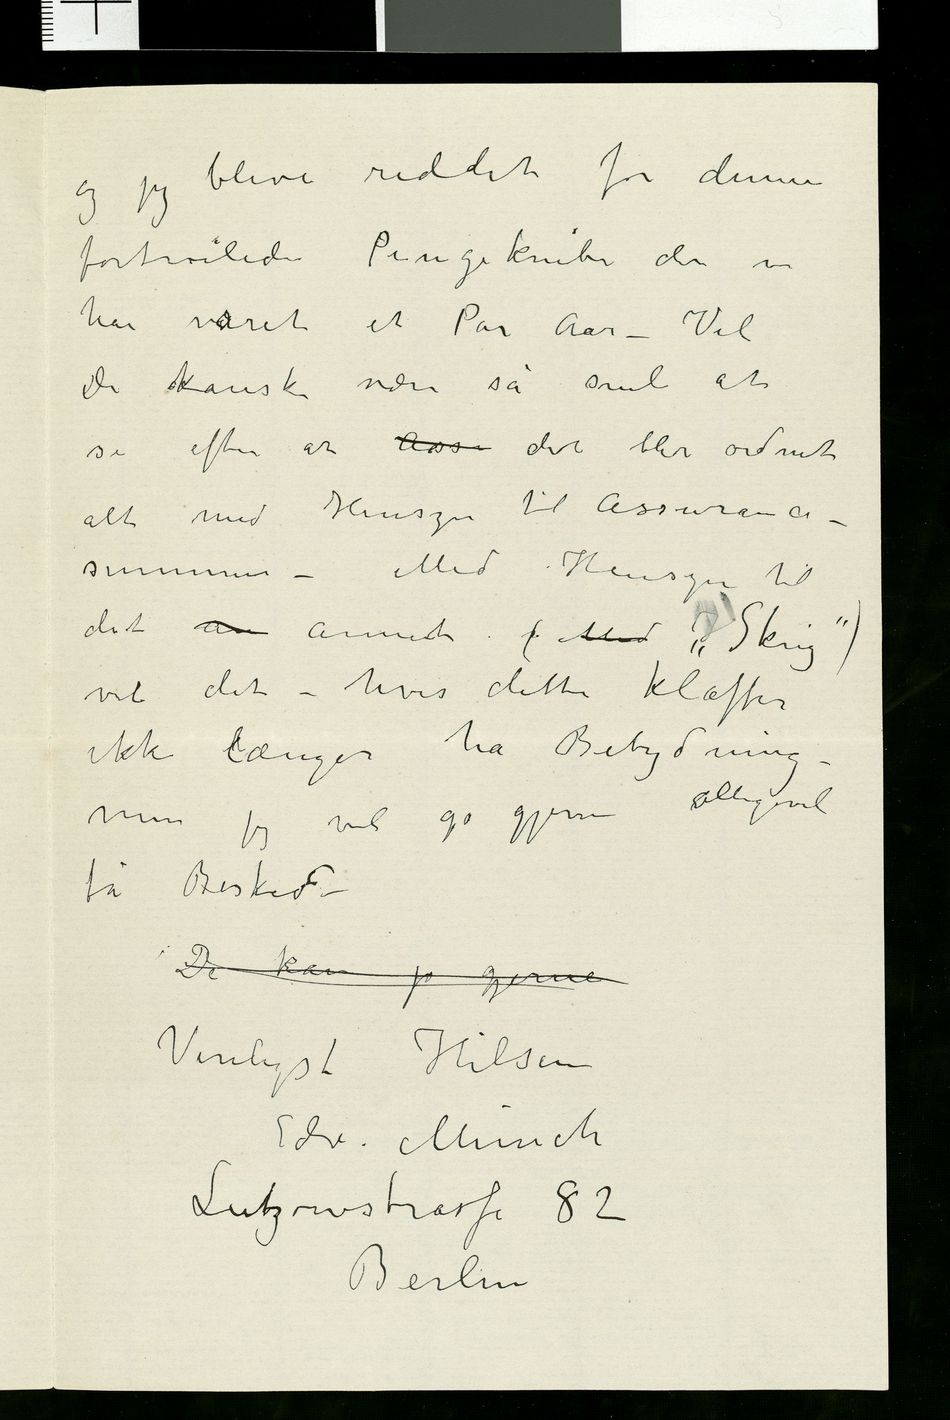 og jeg bleve reddet for denne
fortvilede Pengeknibe der vi
har været et Par Aar – Vil
De kanske være så snil at
se efter at Ass det blir ordnet
alt med Hensyn til Assurance–
summen – Med Hensyn til
det an annet (Med „Skrig“)
vil det – hvis dette klaffer
ikke længer ha Betydning –
men jeg vil jo gjerne alligevel
få Besked –
De kan jo gjerne
Venligst Hilsen
Edv. Munch
Lutzowstrasse 82
Berlin